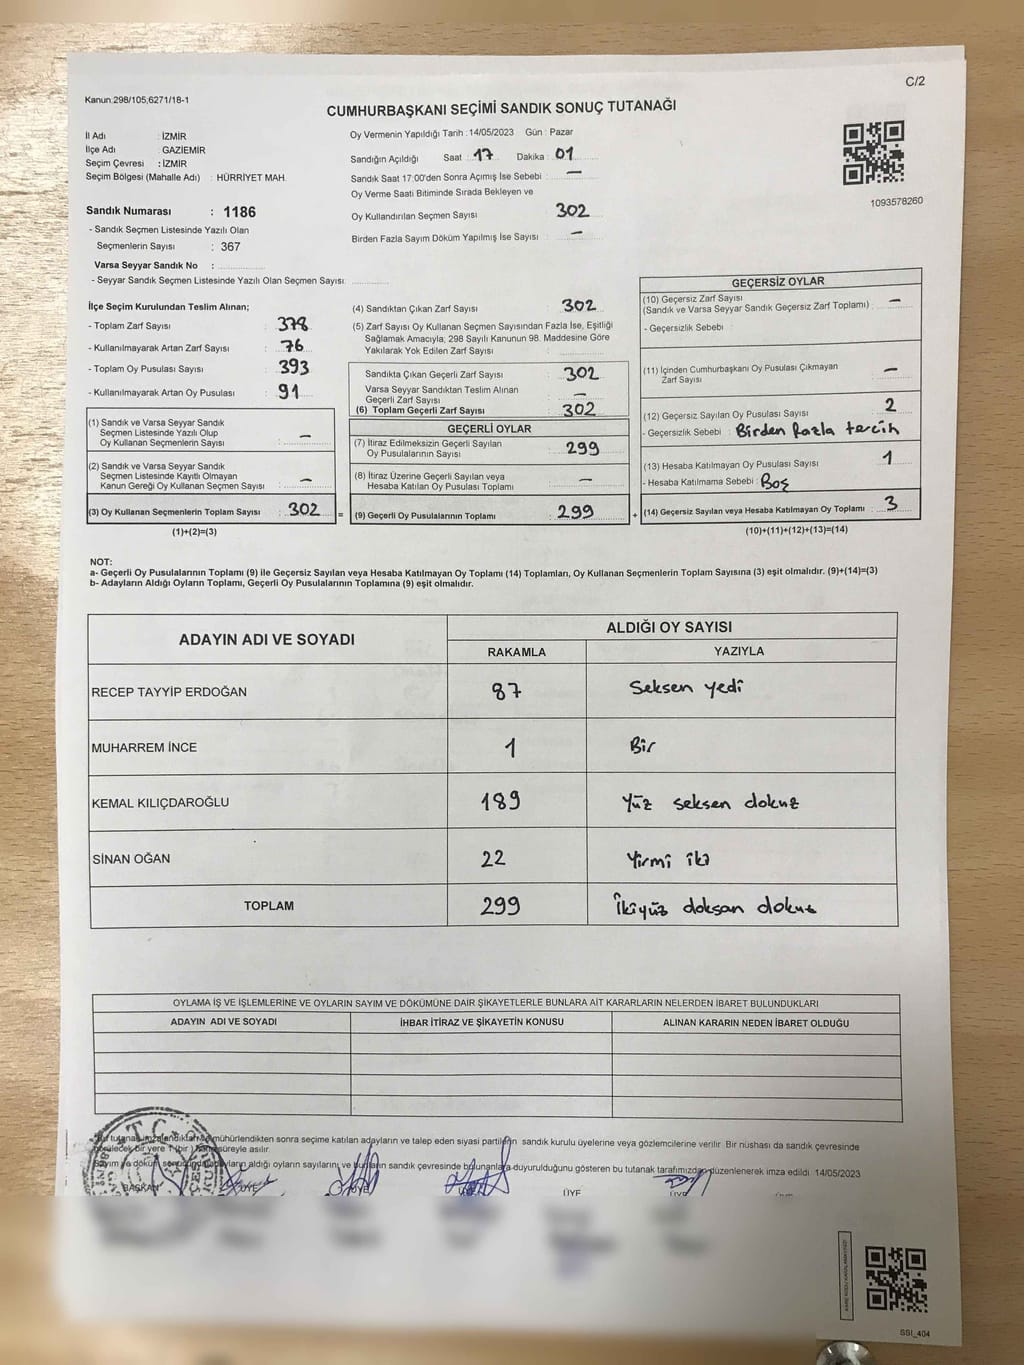 C/2
Kanun:298/105,6271/18-1
CUMHURBAŞKANI SEÇİMİ SANDIK SONUÇ TUTANAĞI
İl Adı : İZMİR
İlçe Adı : GAZİEMİR
Seçim Çevresi : İZMİR
Seçim Bölgesi (Mahalle Adı) : HÜRRİYET MAH.
Sandık Numarası : 1186
- Sandık Seçmen Listesinde Yazılı Olan
Seçmenlerin Sayısı : 367
Varsa Seyyar Sandık No :
- Seyyar Sandık Seçmen Listesinde Yazılı Olan Seçmen Sayısı:
Oy Vermenin Yapıldığı Tarih : 14/05/2023 Gün : Pazar
Sandığın Açıldığı Saat : 17 Dakika : 01
Sandık Saat 17:00'den Sonra Açımış İse Sebebi : —
Oy Verme Saati Bitiminde Sırada Bekleyen ve
Oy Kullandırılan Seçmen Sayısı 302
Birden Fazla Sayım Döküm Yapılmış İse Sayısı : —
1093578260
İlçe Seçim Kurulundan Teslim Alınan;
- Toplam Zarf Sayısı : 378
- Kullanılmayarak Artan Zarf Sayısı : 76
- Toplam Oy Pusulası Sayısı : 393
- Kullanılmayarak Artan Oy Pusulası : 91
(1) Sandık ve Varsa Seyyar Sandık
Seçmen Listesinde Yazılı Olup
Oy Kullanan Seçmenlerin Sayısı : —
(2) Sandık ve Varsa Seyyar Sandık
Seçmen Listesinde Kayıtlı Olmayan
Kanun Gereği Oy Kullanan Seçmen Sayısı : —
(3) Oy Kullanan Seçmenlerin Toplam Sayısı : 302 =
(1)+(2)=(3)
(4) Sandıktan Çıkan Zarf Sayısı : 302
(5) Zarf Sayısı Oy Kullanan Seçmen Sayısından Fazla İse, Eşitliği
Sağlamak Amacıyla; 298 Sayılı Kanunun 98. Maddesine Göre
Yakılarak Yok Edilen Zarf Sayısı :
Sandıkta Çıkan Geçerli Zarf Sayısı : 302
Varsa Seyyar Sandıktan Teslim Alınan
Geçerli Zarf Sayısı : —
(6) Toplam Geçerli Zarf Sayısı : 302
GEÇERLİ OYLAR
(7) İtiraz Edilmeksizin Geçerli Sayılan
Oy Pusulalarının Sayısı : 299
(8) İtiraz Üzerine Geçerli Sayılan veya
Hesaba Katılan Oy Pusulası Toplamı : —
(9) Geçerli Oy Pusulalarının Toplamı : 299 +
GEÇERSİZ OYLAR
(10) Geçersiz Zarf Sayısı
(Sandık ve Varsa Seyyar Sandık Geçersiz Zarf Toplamı) : —
- Geçersizlik Sebebi :
(11) İçinden Cumhurbaşkanı Oy Pusulası Çıkmayan
Zarf Sayısı : —
(12) Geçersiz Sayılan Oy Pusulası Sayısı : 2
- Geçersizlik Sebebi : Birden fazla tercih
(13) Hesaba Katılmayan Oy Pusulası Sayısı : 1
- Hesaba Katılmama Sebebi : Boş
(14) Geçersiz Sayılan veya Hesaba Katılmayan Oy Toplamı : 3
(10)+(11)+(12)+(13)=(14)
NOT:
a- Geçerli Oy Pusulalarının Toplamı (9) ile Geçersiz Sayılan veya Hesaba Katılmayan Oy Toplamı (14) Toplamları, Oy Kullanan Seçmenlerin Toplam Sayısına (3) eşit olmalıdır. (9)+(14)=(3)
b- Adayların Aldığı Oyların Toplamı, Geçerli Oy Pusulalarının Toplamına (9) eşit olmalıdır.
ADAYIN ADI VE SOYADI ALDIĞI OY SAYISI
RAKAMLA YAZIYLA
RECEP TAYYİP ERDOĞAN 87 Seksen yedi
MUHARREM İNCE 1 Bir
KEMAL KILIÇDAROĞLU 189 Yüz seksen dokuz
SİNAN OĞAN 22 Yirmi iki
TOPLAM 299 İkiyüz doksan dokuz
OYLAMA İŞ VE İŞLEMLERİNE VE OYLARIN SAYIM VE DÖKÜMÜNE DAİR ŞİKAYETLERLE BUNLARA AİT KARARLARIN NELERDEN İBARET BULUNDUKLARI
ADAYIN ADI VE SOYADI İHBAR İTİRAZ VE ŞİKAYETİN KONUSU ALINAN KARARIN NEDEN İBARET OLDUĞU
mühürlendikten sonra seçime katılan adayların ve talep eden siyasi partilerin sandık kurulu üyelerine veya gözlemcilerine verilir. Bir nüshası da sandık çevresinde
bir yere 1 (bir) süreyle asılır.
aldığı oyların sayılarını ve bunların sandık çevresinde bulunanlara duyurulduğunu gösteren bu tutanak tarafımızdan düzenlenerek imza edildi. 14/05/2023
BAŞKAN ÜYE ÜYE ÜYE ÜYE ÜYE
T.C.
SSI_404